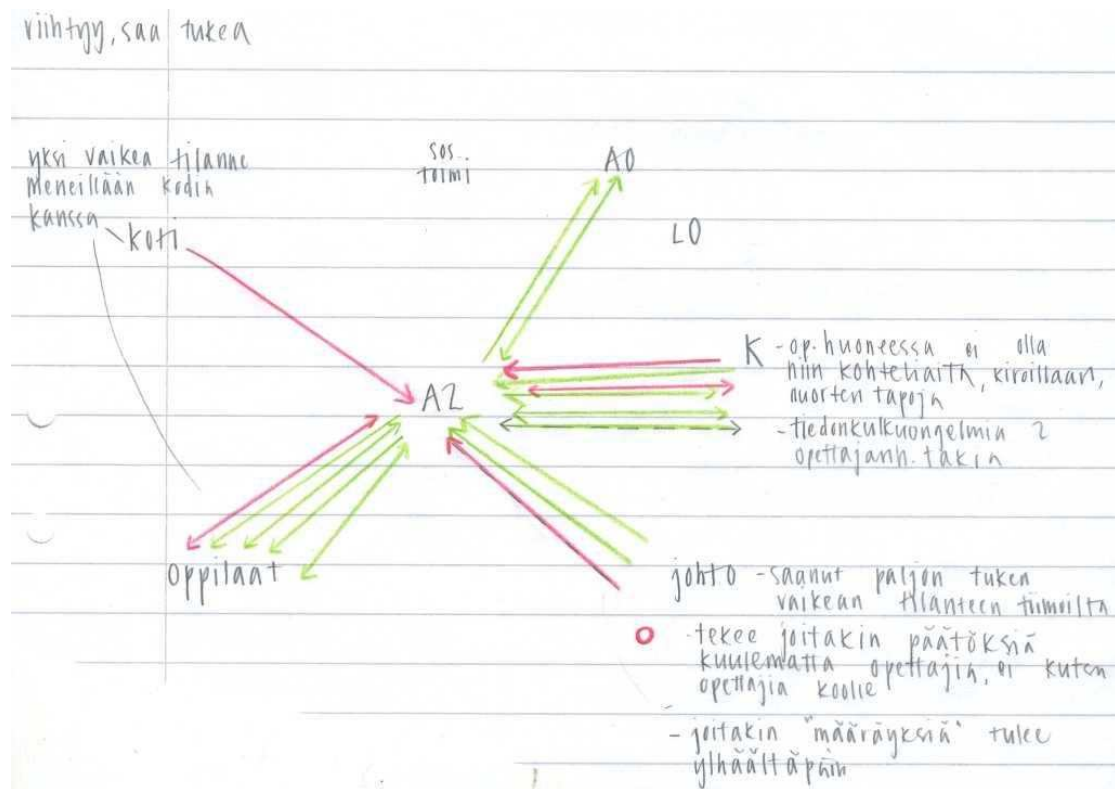 viihtyy, saa tukea
yksi vaikea tilanne
meneillään kodin
kanssa
koti
sos.
toimi
AO
LO
K - op.huoneessa ei olla
niin kohteliaita, kiroillaan,
nuorten tapoja
- tiedonkulkuongelmia 2
opettajanh. takia
A2
oppilaat
johto - saanut paljon tukea
vaikean tilanteen tiimoilta
- tekee joitakin päätöksiä
kuulematta opettajia, ei kutsu
opettajia koolle
- joitakin "määräyksiä" tulee
ylhäältäpäin